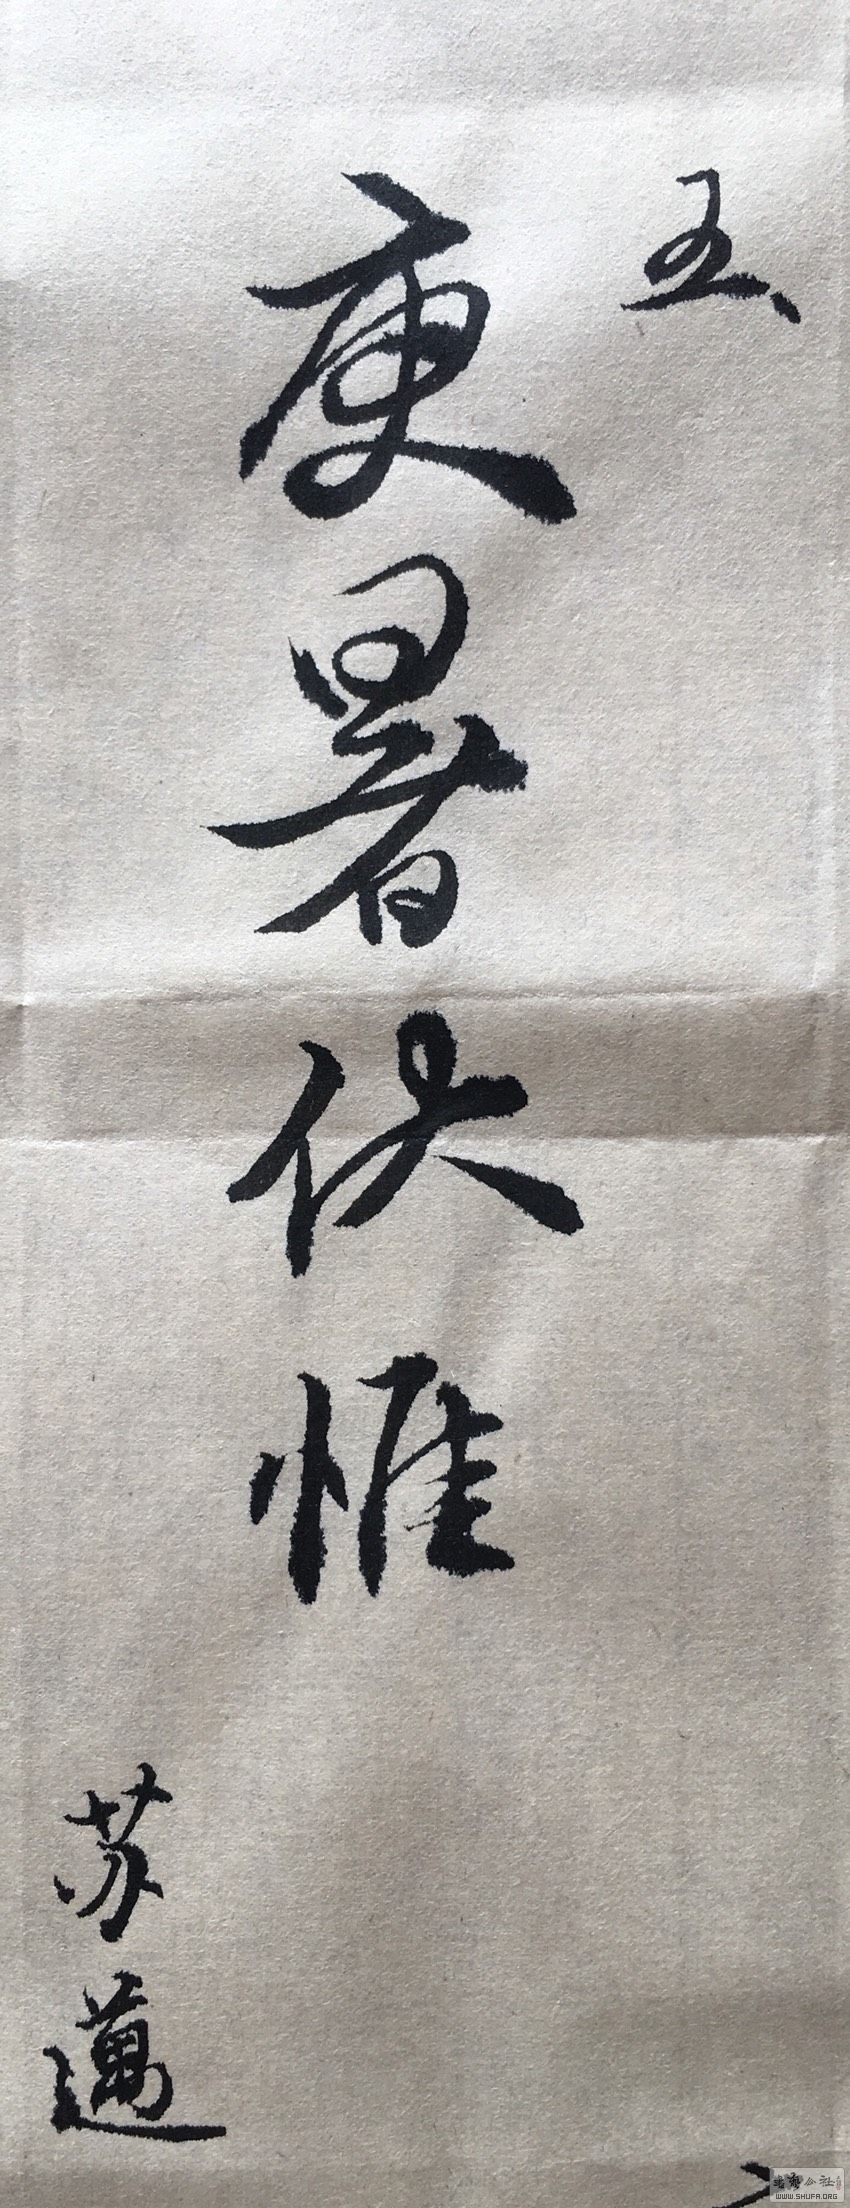 五、
庚暑伏惟
苏邁
书藝公社
WWW.SHUFA.ORG